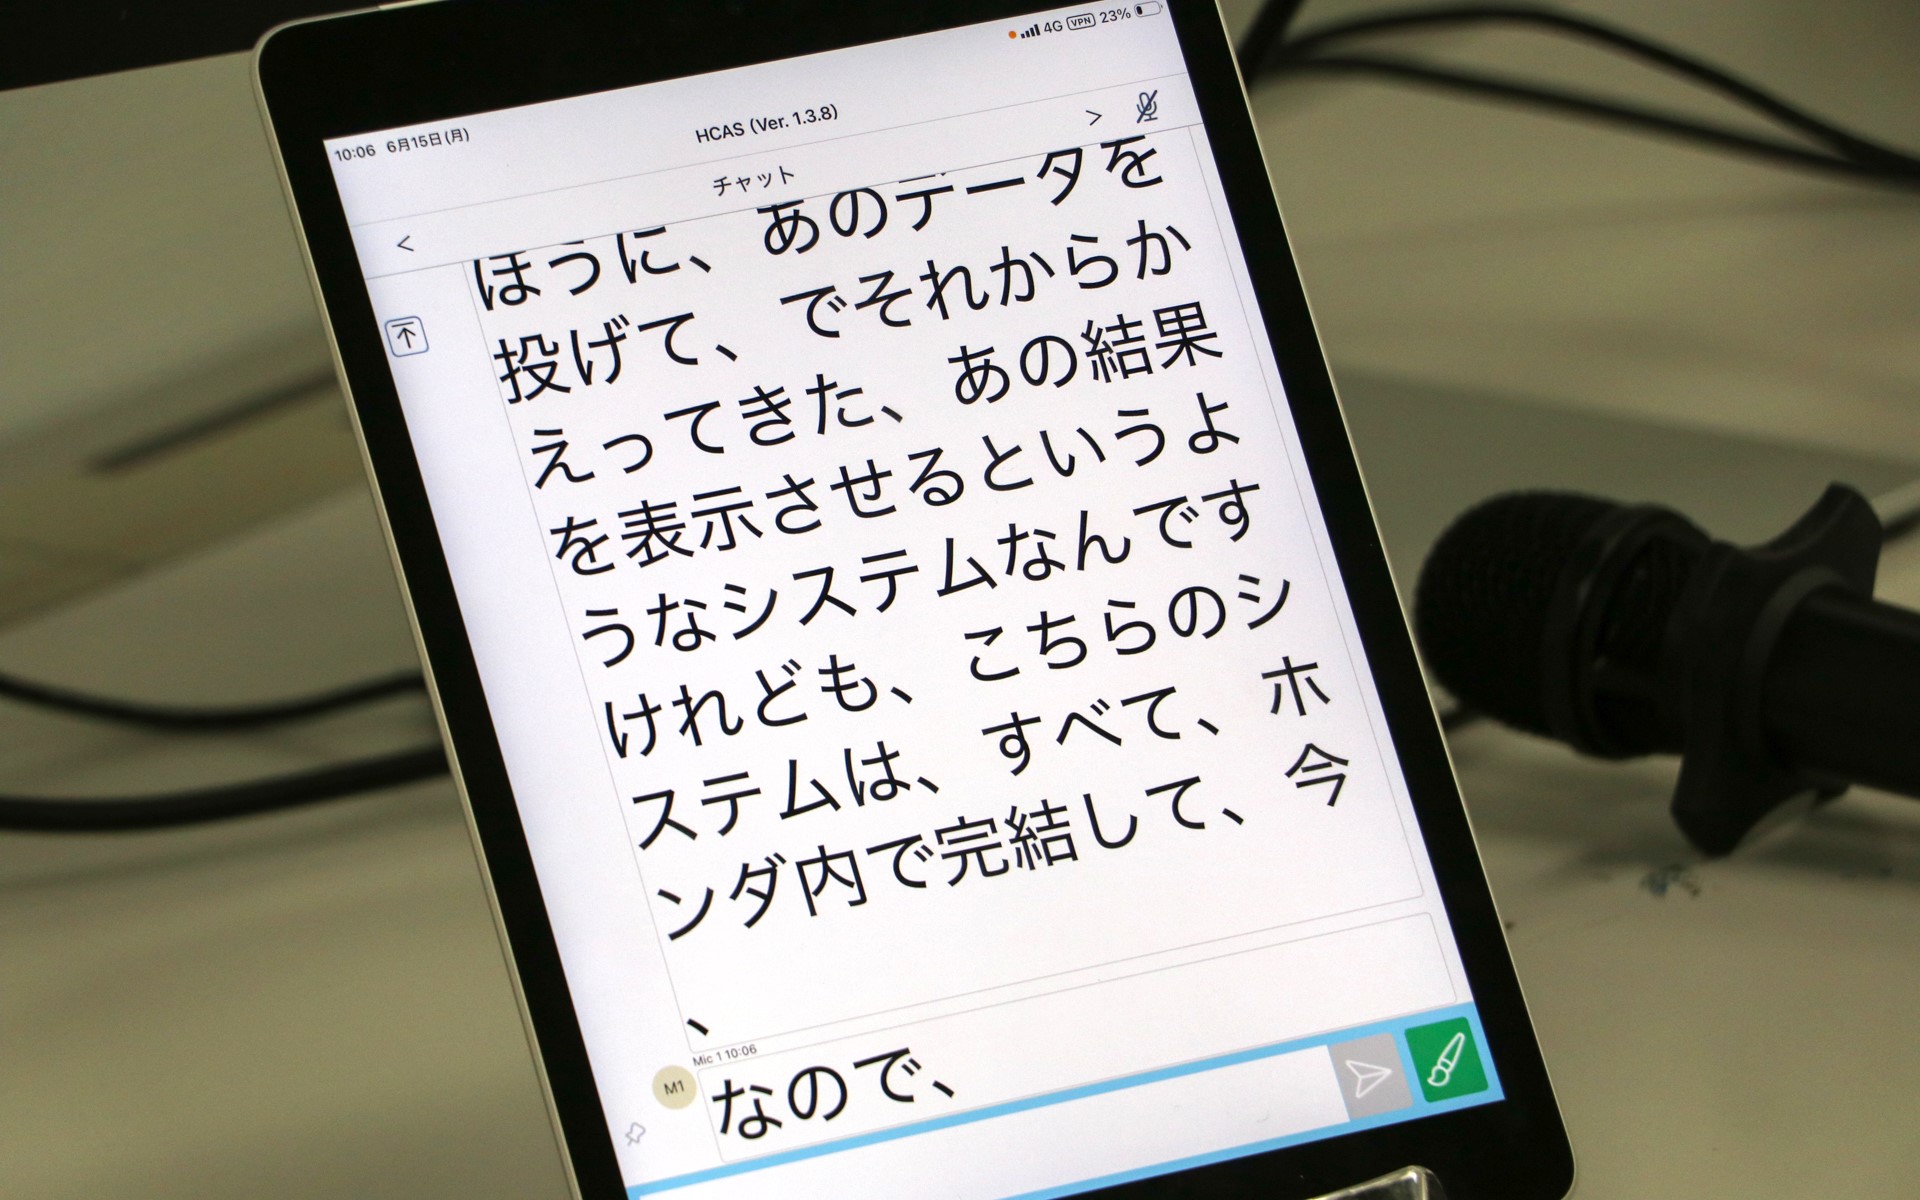 10:06 6月15日(月)
4G VPN 23%
HCAS (Ver. 1.3.8)
<
チャット
>
ほうに、あのデータを
投げて、でそれからか
えってきた、あの結果
を表示させるというよ
うなシステムなんです
けれども、こちらのシ
ステムは、すべて、ホ
ンダ内で完結して、今
、
Mic 1 10:06
M1
なので、